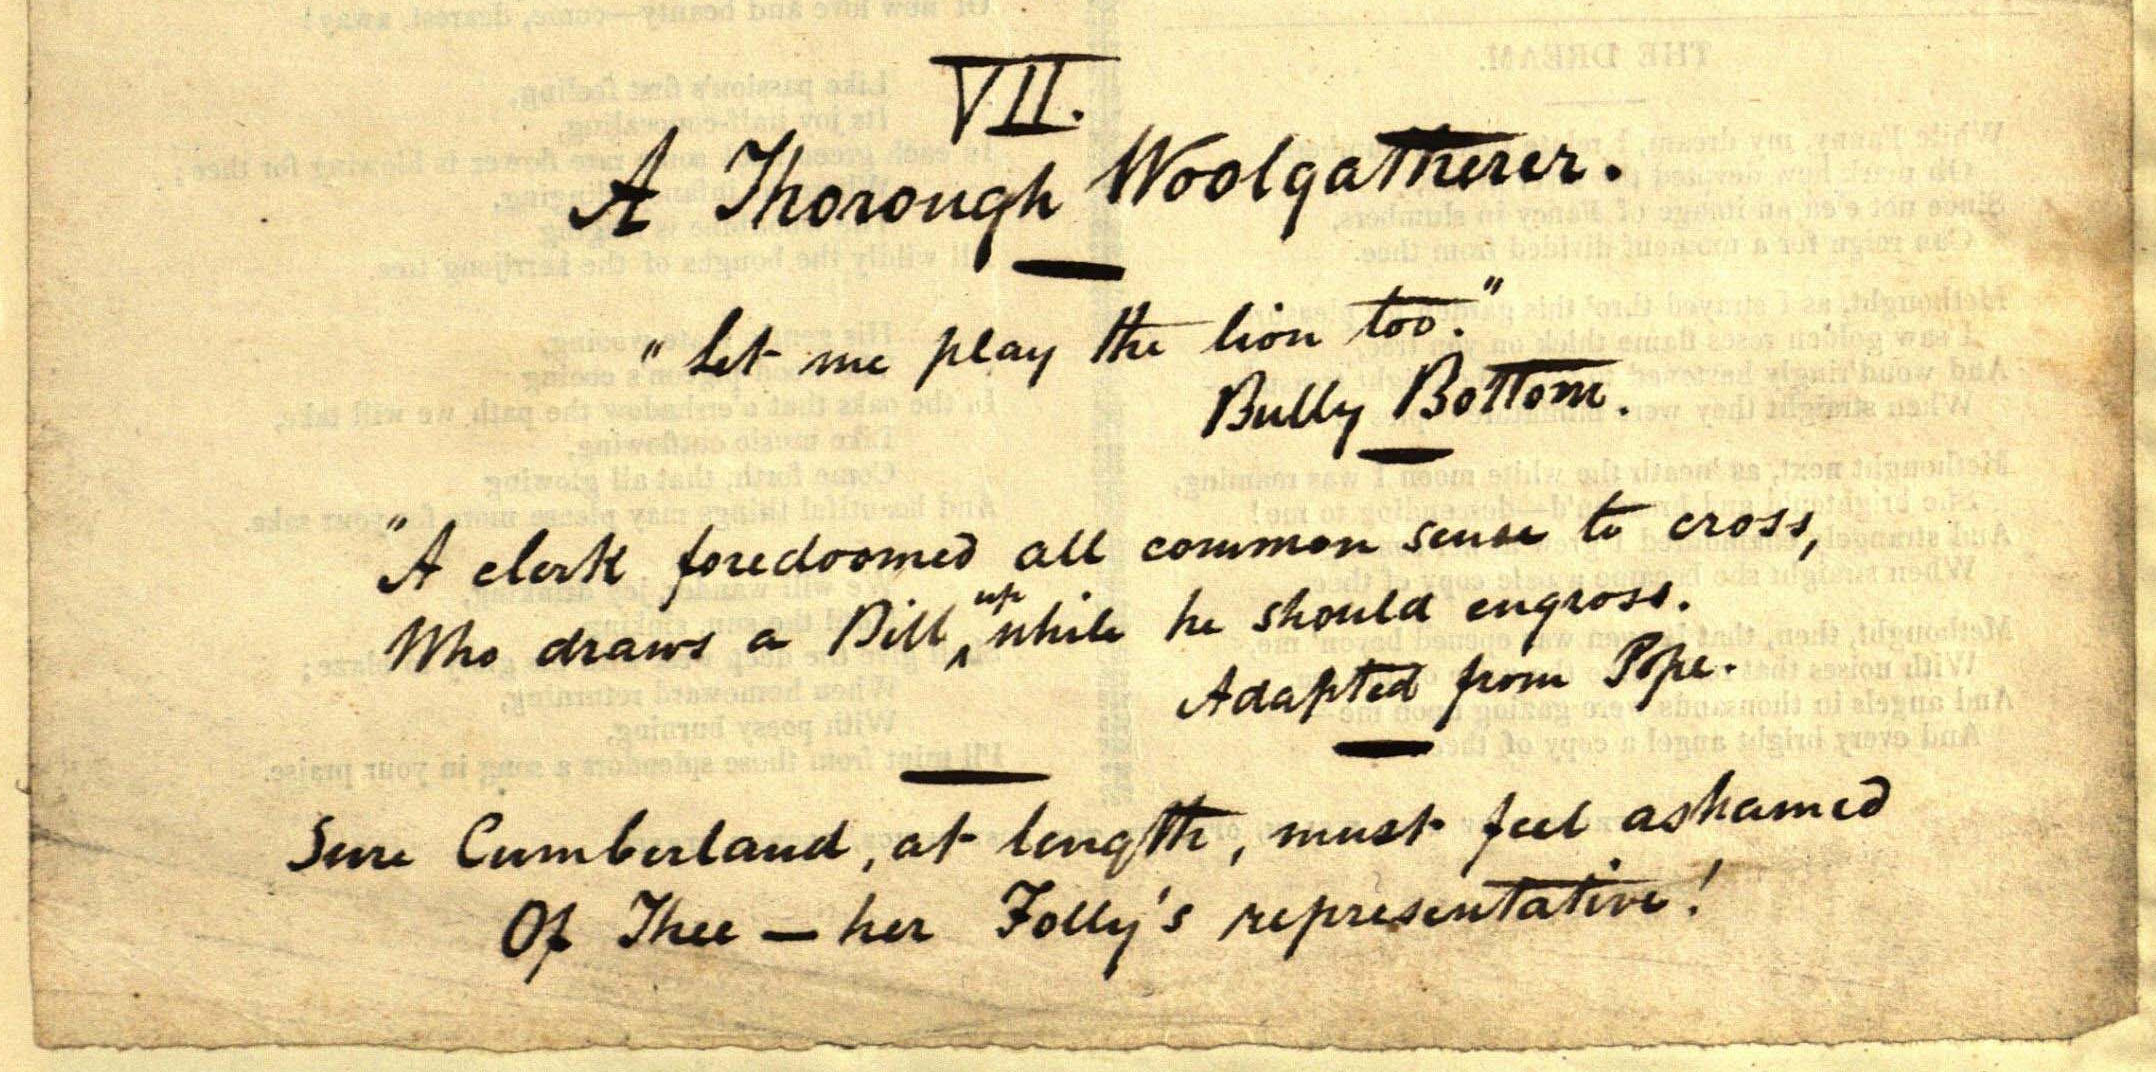 VII.
A Thorough Woolgatherer.
"Let me play the lion too."
Bully Bottom.
"A clerk foredoomed all common sense to cross,
Who draws a Bill up while he should engross.
Adapted from Pope.
Sure Cumberland, at length, must feel ashamed
Of Thee — her Folly's representative!